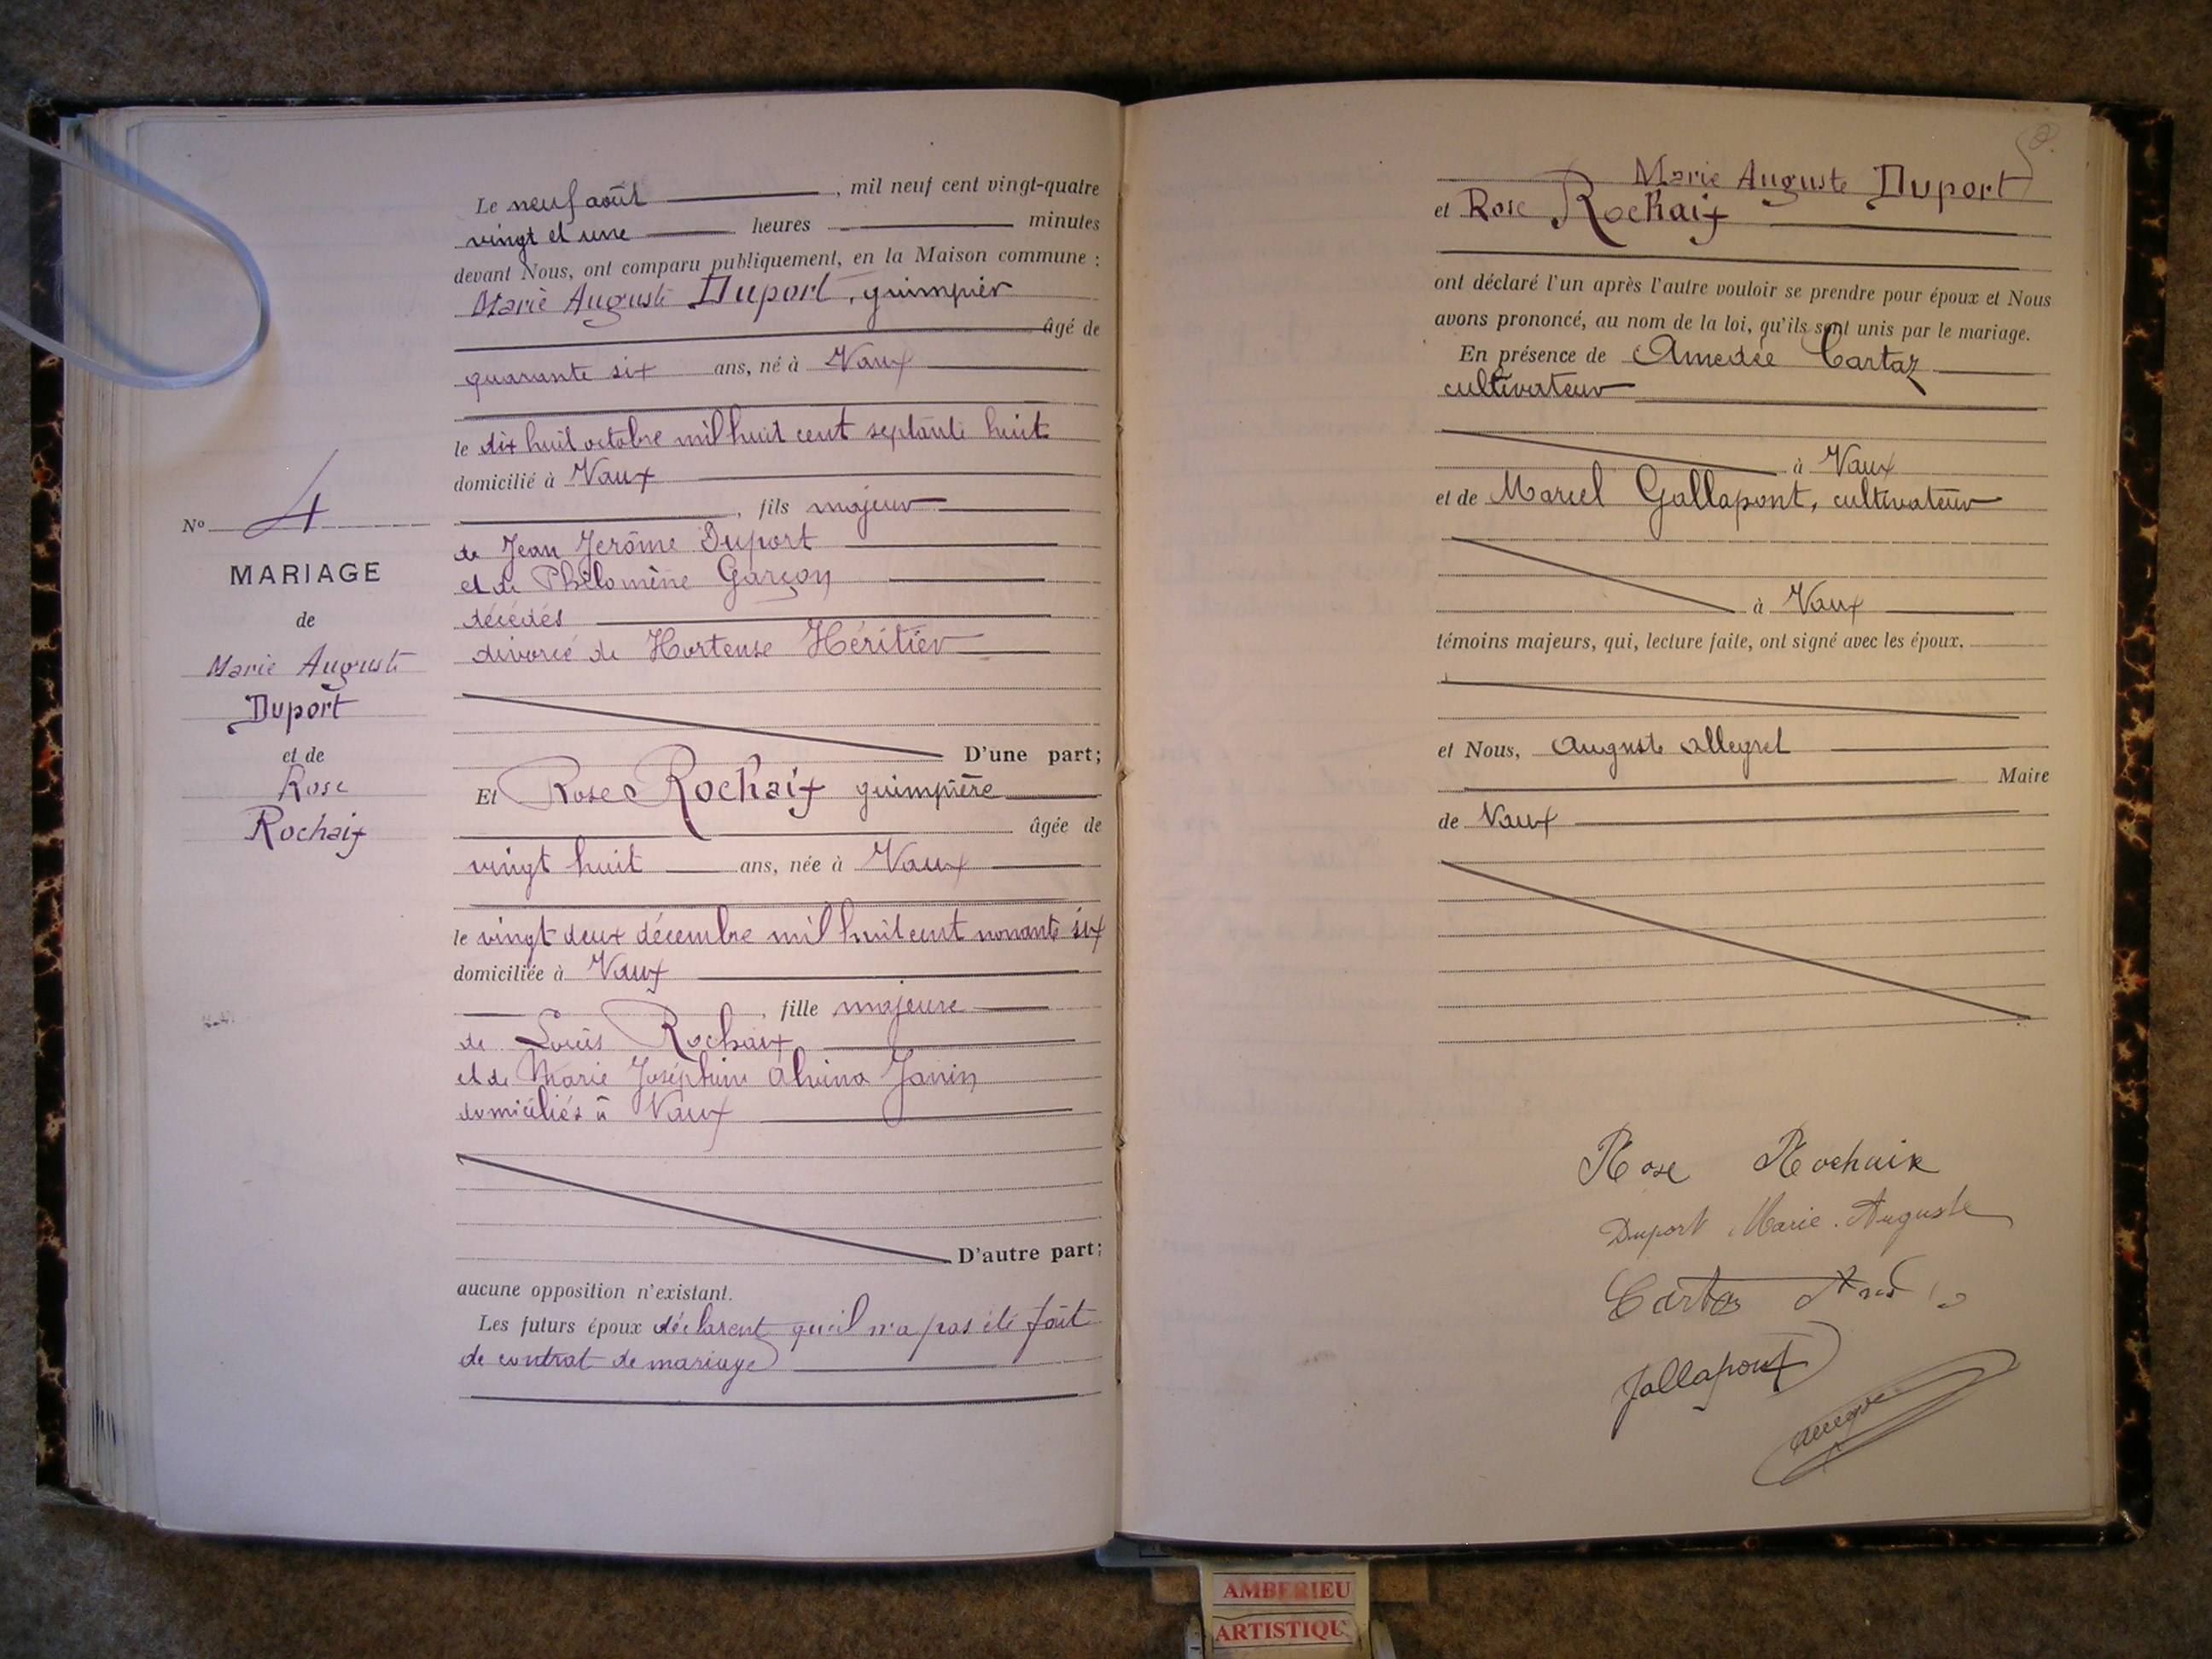 Nº 4
MARIAGE
de
Marie Auguste
Duport
et de
Rose
Rochaix
Le neuf août, mil neuf cent vingt-quatre
vingt et une heures minutes
devant Nous, ont comparu publiquement, en la Maison commune :
Marie Auguste Duport, guimpier
âgé de
quarante six ans, né à Vaux
le dix huit octobre mil huit cent septante huit
domicilié à Vaux
, fils majeur
de Jean Jerôme Duport
et de Philomène Garçon
décédés
divorcé de Hortense Héritier
D'une part;
Et Rose Rochaix guimpière
âgée de
vingt huit ans, née à Vaux
le vingt deux décembre mil huit cent nonante six
domiciliée à Vaux
, fille majeure
de Louis Rochaix
et de Marie Joséphine Alvina Janin
domiciliés à Vaux
D'autre part;
aucune opposition n'existant.
Les futurs époux déclarent qu'il n'a pas été fait
de contrat de mariage
Marie Auguste Duport
et Rose Rochaix
ont déclaré l'un après l'autre vouloir se prendre pour époux et Nous
avons prononcé, au nom de la loi, qu'ils sont unis par le mariage.
En présence de Amedée Cartaz
cultivateur
à Vaux
et de Marcel Gallapont, cultivateur
à Vaux
témoins majeurs, qui, lecture faite, ont signé avec les époux.
et Nous, Auguste Allegret
Maire
de Vaux
Rose Rochaix
Duport Marie. Auguste
Cartaz
Jallapont
AMBERIEU
ARTISTIQU